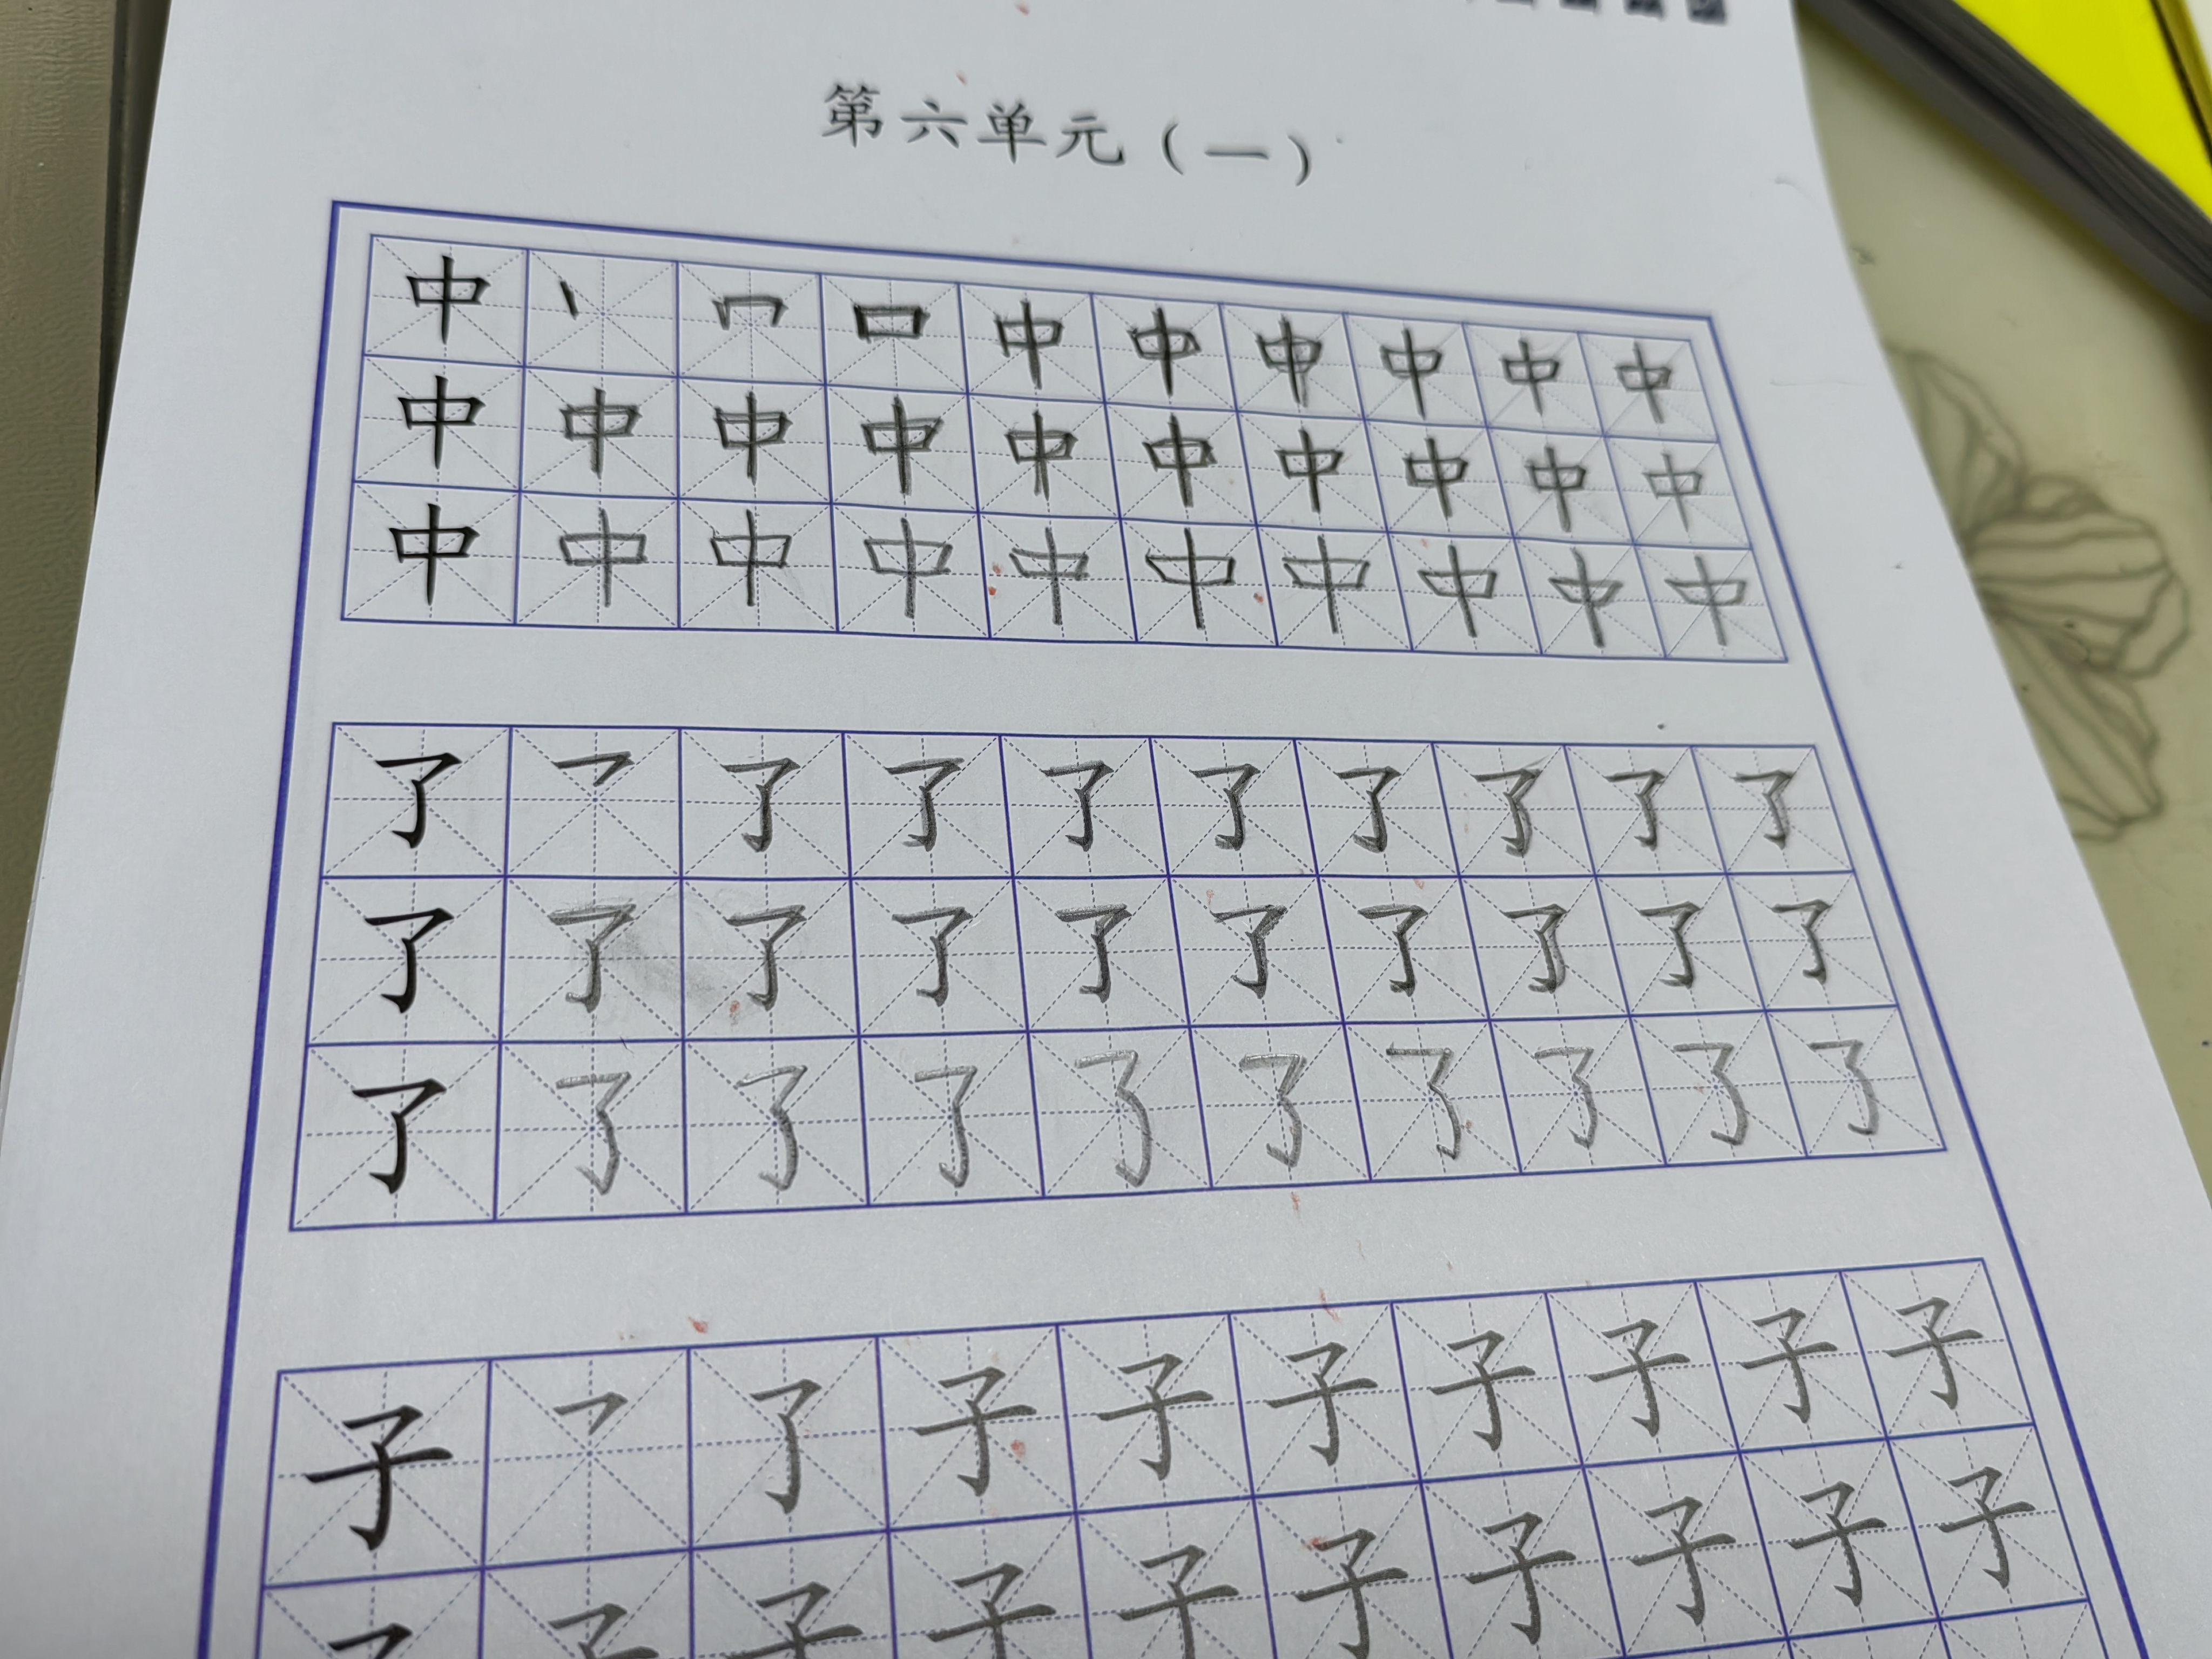 第六单元（一）
中 丶 冂 口 中 中 中 中 中 中
中 中 中 中 中 中 中 中 中 中
中 中 中 中 中 中 中 中 中 中
了 乛 了 了 了 了 了 了 了 了
了 了 了 了 了 了 了 了 了 了
了 了 了 了 了 了 了 了 了 了
子 乛 了 子 子 子 子 子 子 子
子 子 子 子 子 子 子 子 子